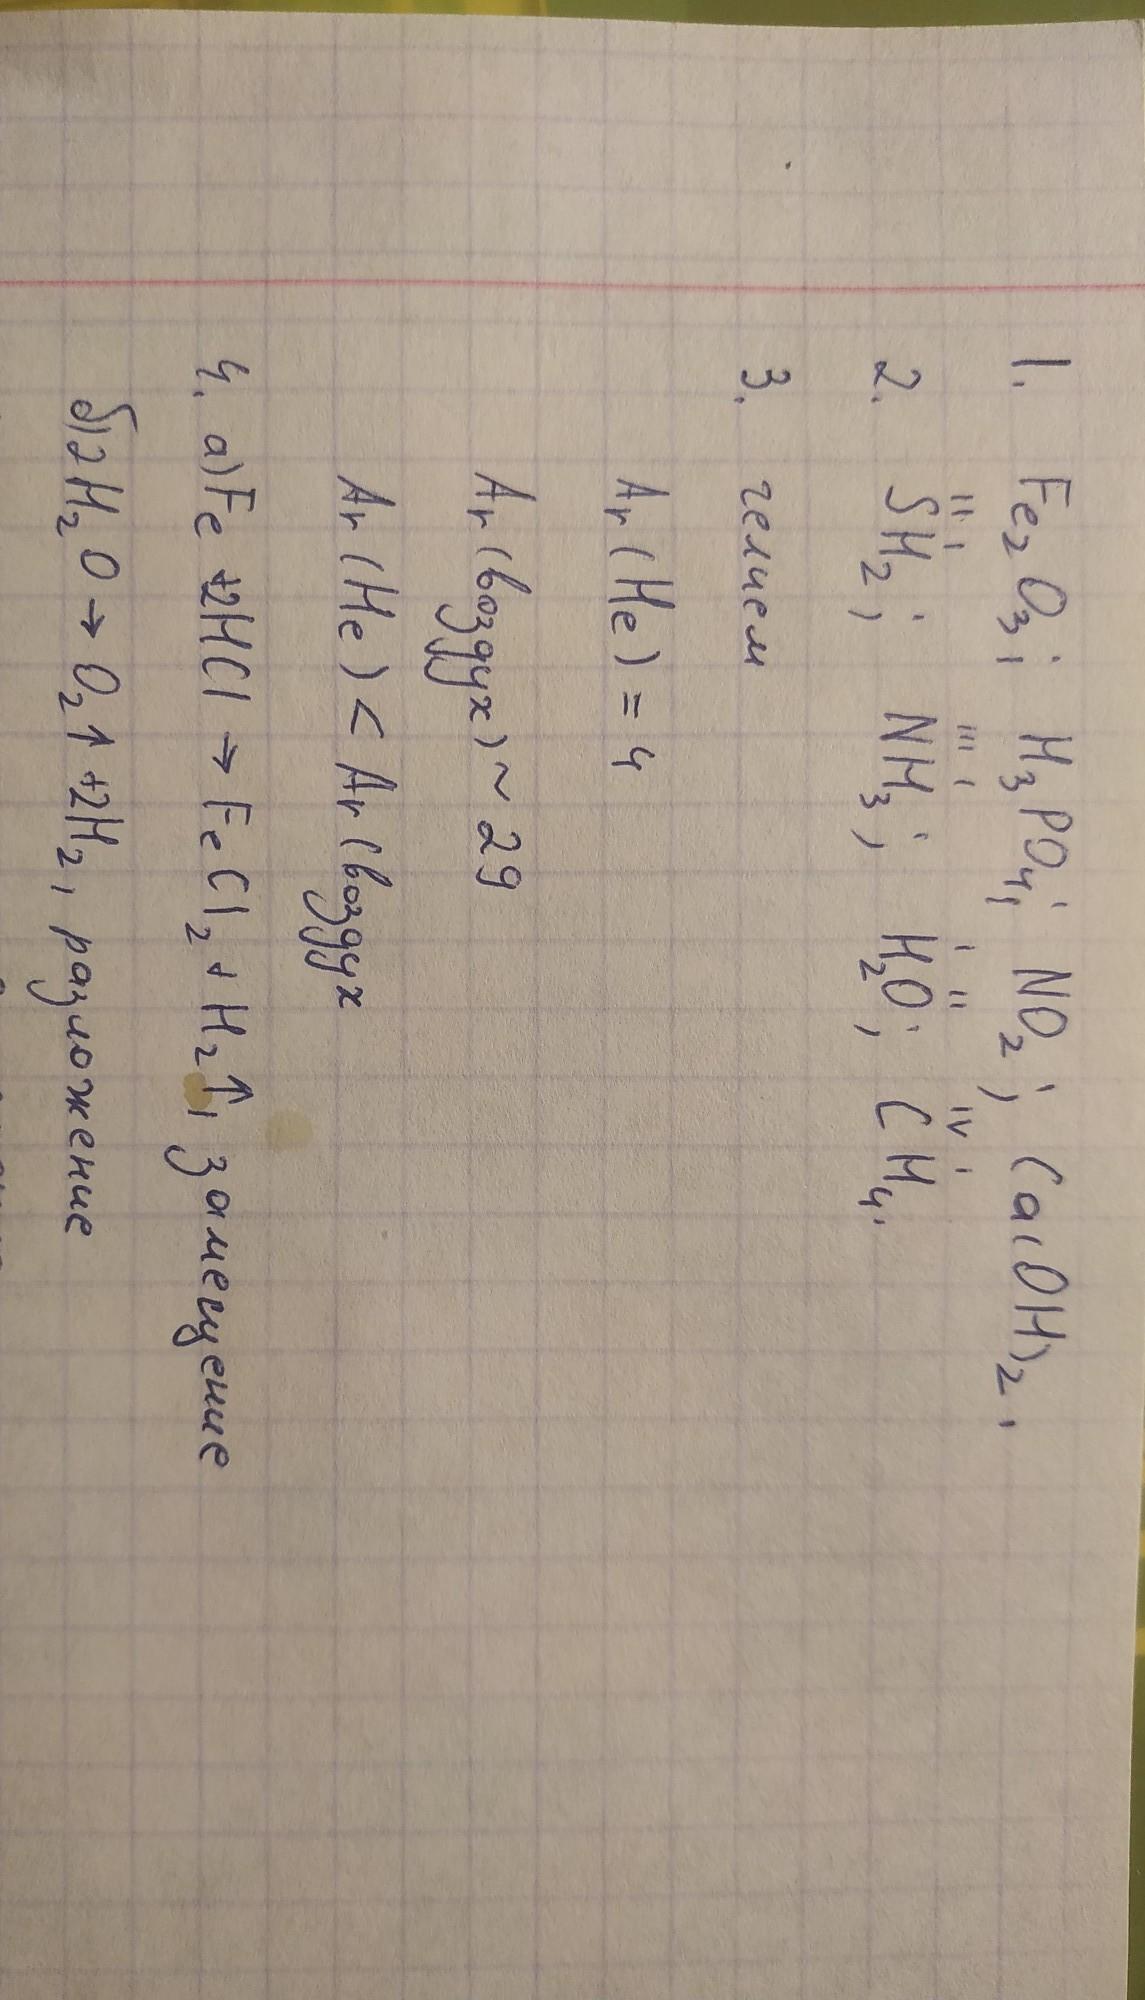 1. Fe₂O₃; H₃PO₄; NO₂; Ca(OH)₂.
II I III I I II IV I
2. SH₂; NH₃; H₂O; CH₄.
3. гелием
Ar(He) = 4
Ar(воздух) ~ 29
Ar(He) < Ar(воздух
4. а) Fe +2HCl → FeCl₂ + H₂↑, замещение
б) 2H₂O → O₂↑ +2H₂, разложение